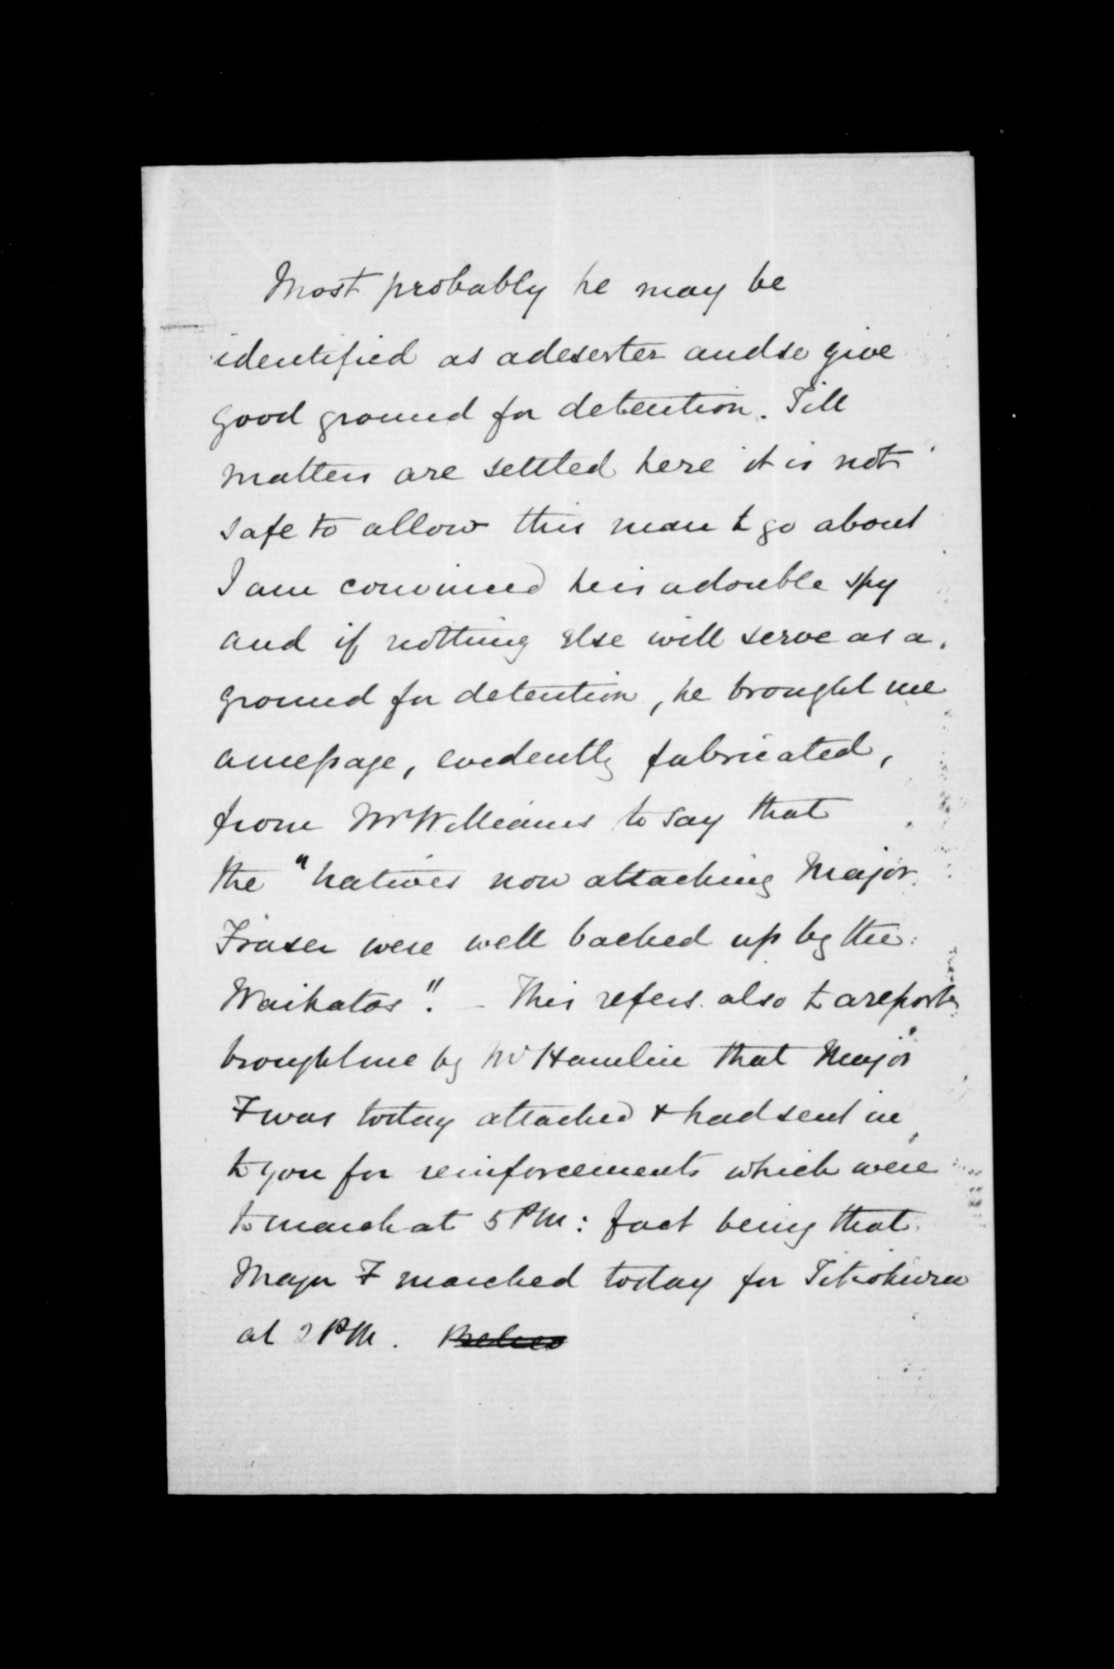 Most probably he may be
identified as a deserter and so give
good ground for detention. Till
matters are settled here it is not
safe to allow this man to go about
I am convinced he is a double spy
and if nothing else will serve as a
ground for detention, he brought me
a message, evidently fabricated,
from Mr Williams to say that
the "natives now attacking Major
Fraser were well backed up by the
Waikatos". – This refers also to a report
brought me by Mr Hamlin that Major
F was today attacked & had sent in
to you for reinforcements which were
to march at 5 PM: fact being that
Major F marched today for Titiokura
at 2 PM.